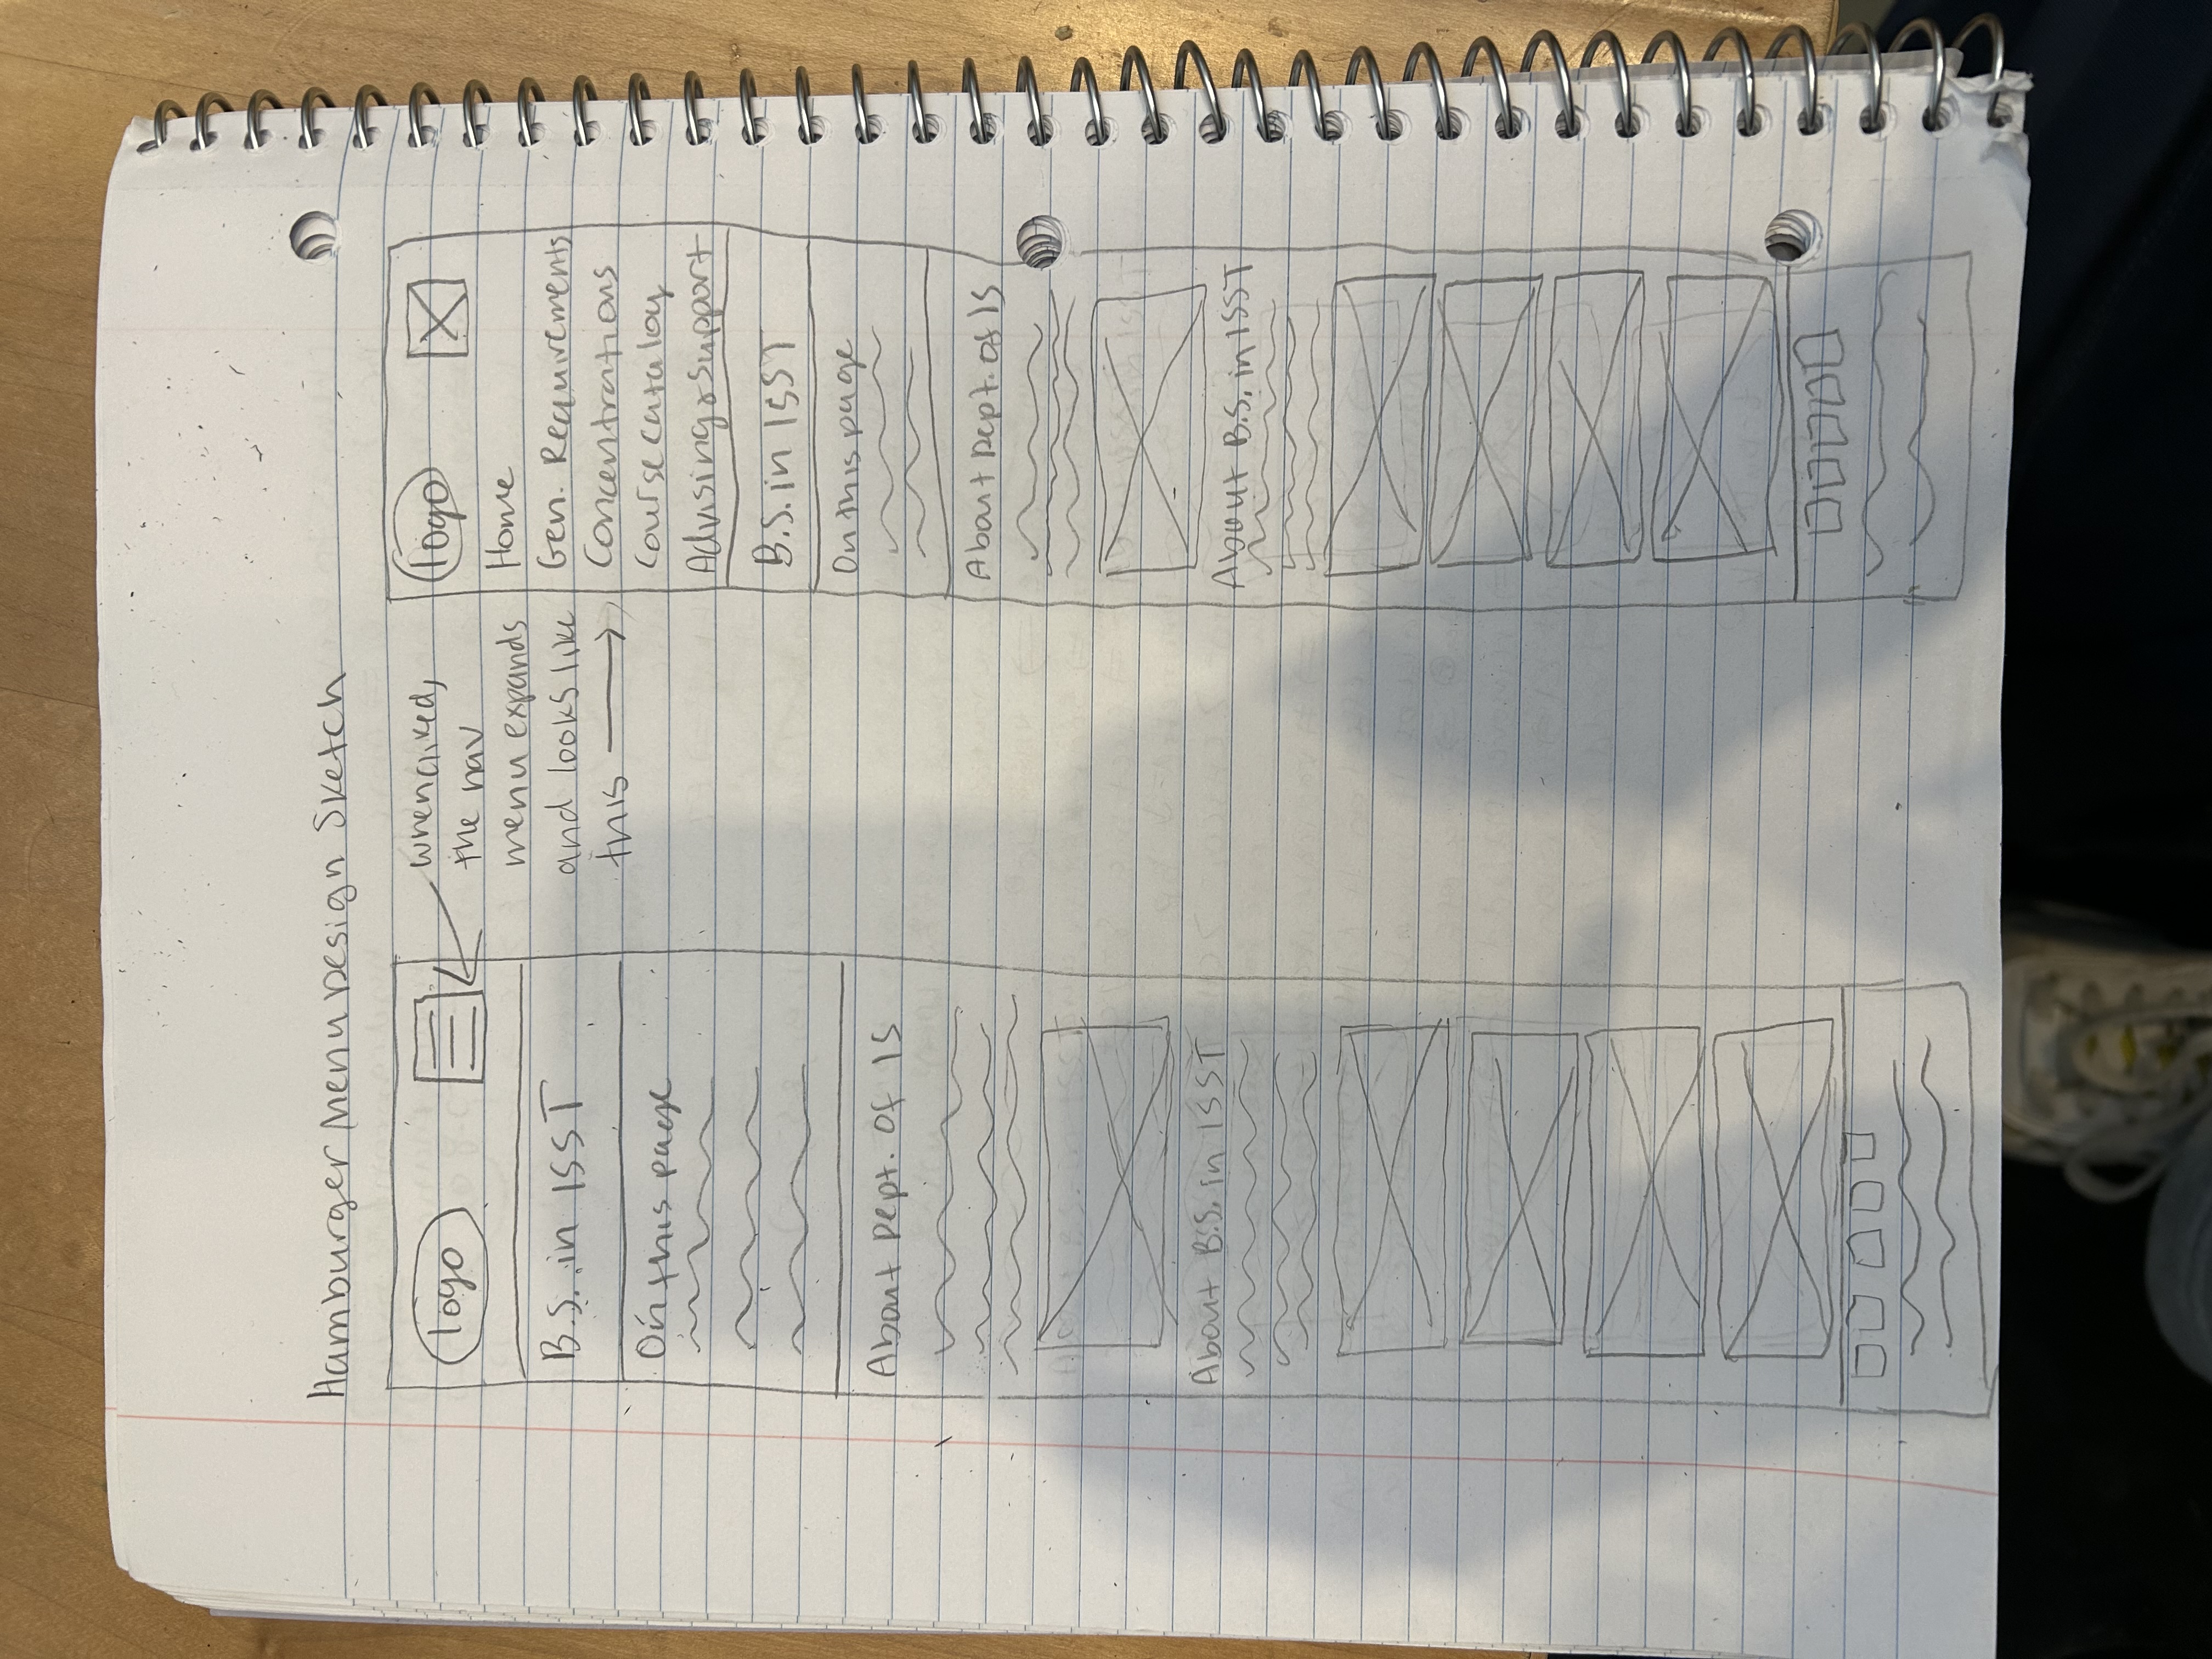 Hamburger Menu Design Sketch
logo
B.S. in ISST
On this page
About Dept. of IS
About B.S. in ISST
when clicked,
the nav
menu expands
and looks like
this
logo
Home
Gen. Requirements
Concentrations
Course catalog
Advising & Support
B.S. in ISST
On this page
About Dept. of IS
About B.S. in ISST